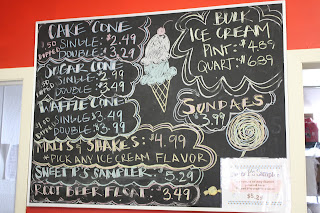 CAKE CONE
SINGLE: $2.49
DOUBLE: $3.29
SUGAR CONE
SINGLE: $2.99
DOUBLE: $3.79
WAFFLE CONE
SINGLE $3.49
DOUBLE: $3.99
MALTS & SHAKES: $4.99
*PICK ANY ICE CREAM FLAVOR
SWEET P'S SAMPLER: 5.29
ROOT BEER FLOAT: 3.49
BULK
ICE CREAM
PINT: $4.89
QUART: $6.89
SUNDAES
$3.99